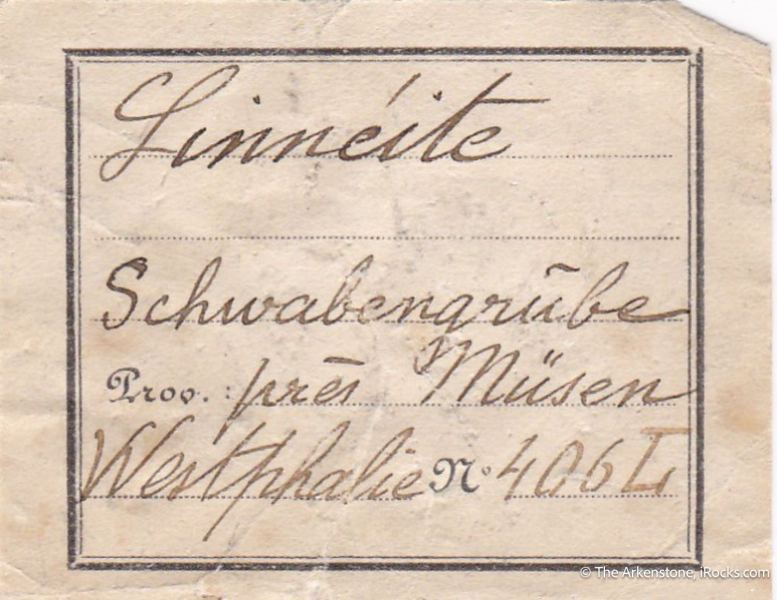 Linnéite
Schwabengrube
Prov. : près Müsen
Westphalie No. 406 L
© The Arkenstone, iRocks.com